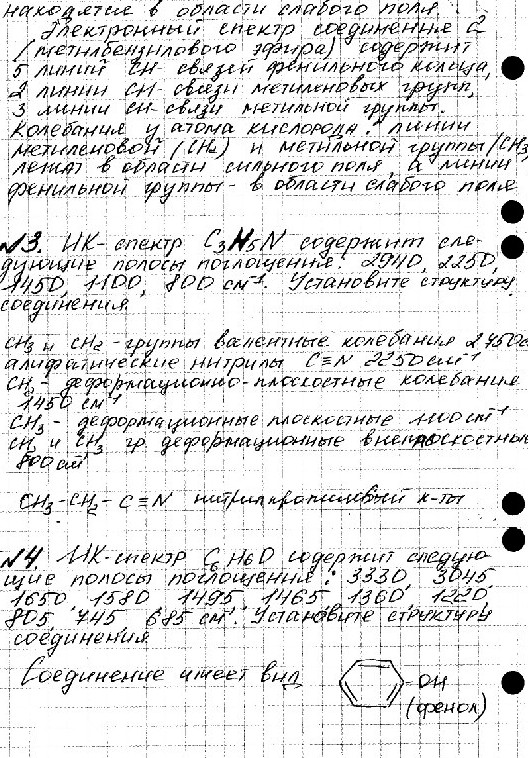 находятся в области слабого поля.
Электронный спектр соединения 2
(метилбензилового эфира) содержит
5 линий CH- связей фенильного кольца,
2 линии CH- связи метиленовых групп,
3 линии CH- связи метильной группы.
Колебания у атома кислорода: линии
метиленовой (CH2) и метильной группы (CH3
лежат в области сильного поля, а линии
фенильной группы - в области слабого поля
№3. ИК- спектр C3H5N содержит сле-
дующие полосы поглощения: 2940, 2250,
1450, 1100, 800 см-1. Установите структуру
соединения
CH3 и CH2 - группы валентные колебания 2950с
алифатические нитрилы C≡N 2250 см-1
CH3 - деформационно-плоскостные колебания
1450 см-1
CH3 - деформационные плоскостные 1100 см-1
CH и CH3 гр. деформационные внеплоскостные
800 см-1
CH3-CH2-C≡N нитрил пропиловый к-ты
№4. ИК-спектр C6H6O содержит следую-
щие полосы поглощения: 3330, 3045,
1650, 1580, 1495, 1465, 1360, 1220,
805, 745, 685 см-1. Установите структуру
соединения
Соединение имеет вид
-OH
(фенол)